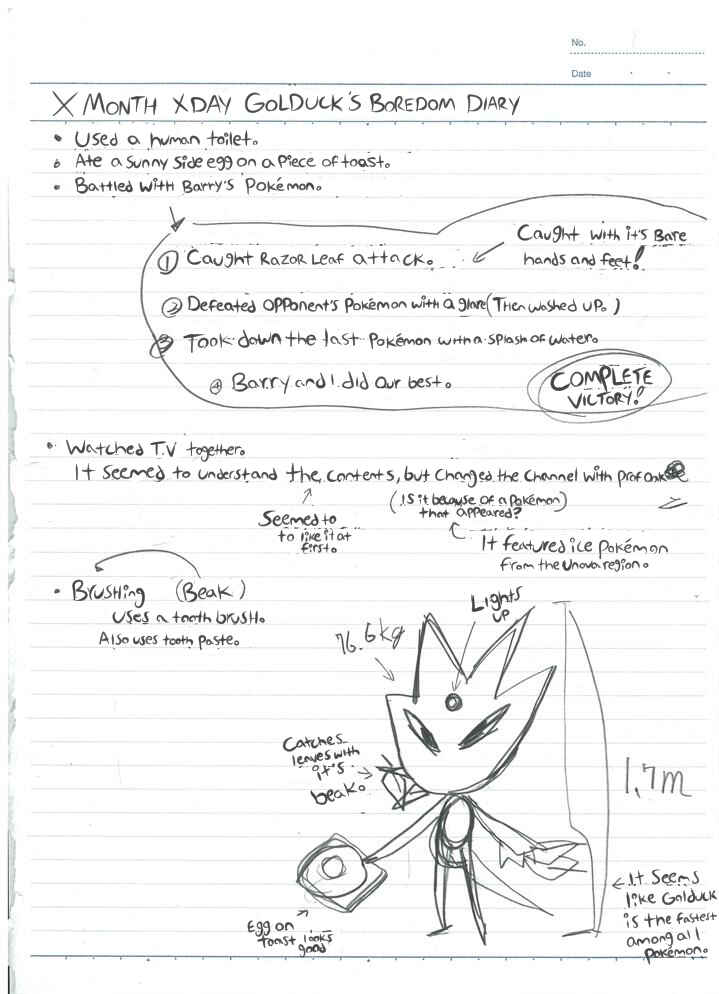 No.
Date
X MONTH X DAY GOLDUCK'S BOREDOM DIARY
• Used a human toilet.
• Ate a sunny side egg on a piece of toast.
• Battled with Barry's Pokémon.
① Caught RAZOR LEAF attack.
Caught with it's Bare
hands and feet!
② Defeated opponent's Pokémon with a glare (Then washed up.)
③ Took down the last Pokémon with a splash of water.
④ Barry and I did our best.
COMPLETE
VICTORY!
• Watched T.V together.
It seemed to understand the contents, but changed the channel with Prof Oak
Seemed to
to like it at
first.
(Is it because of a Pokémon)
that appeared?
It featured ice Pokémon
from the Unova region.
• Brushing (Beak)
Uses a tooth brush.
Also uses tooth paste.
Lights
up
76.6kg
Catches
leaves with
it's
beak.
1.7m
Egg on
toast looks
good
It seems
like Golduck
is the fastest
among all
Pokémon.